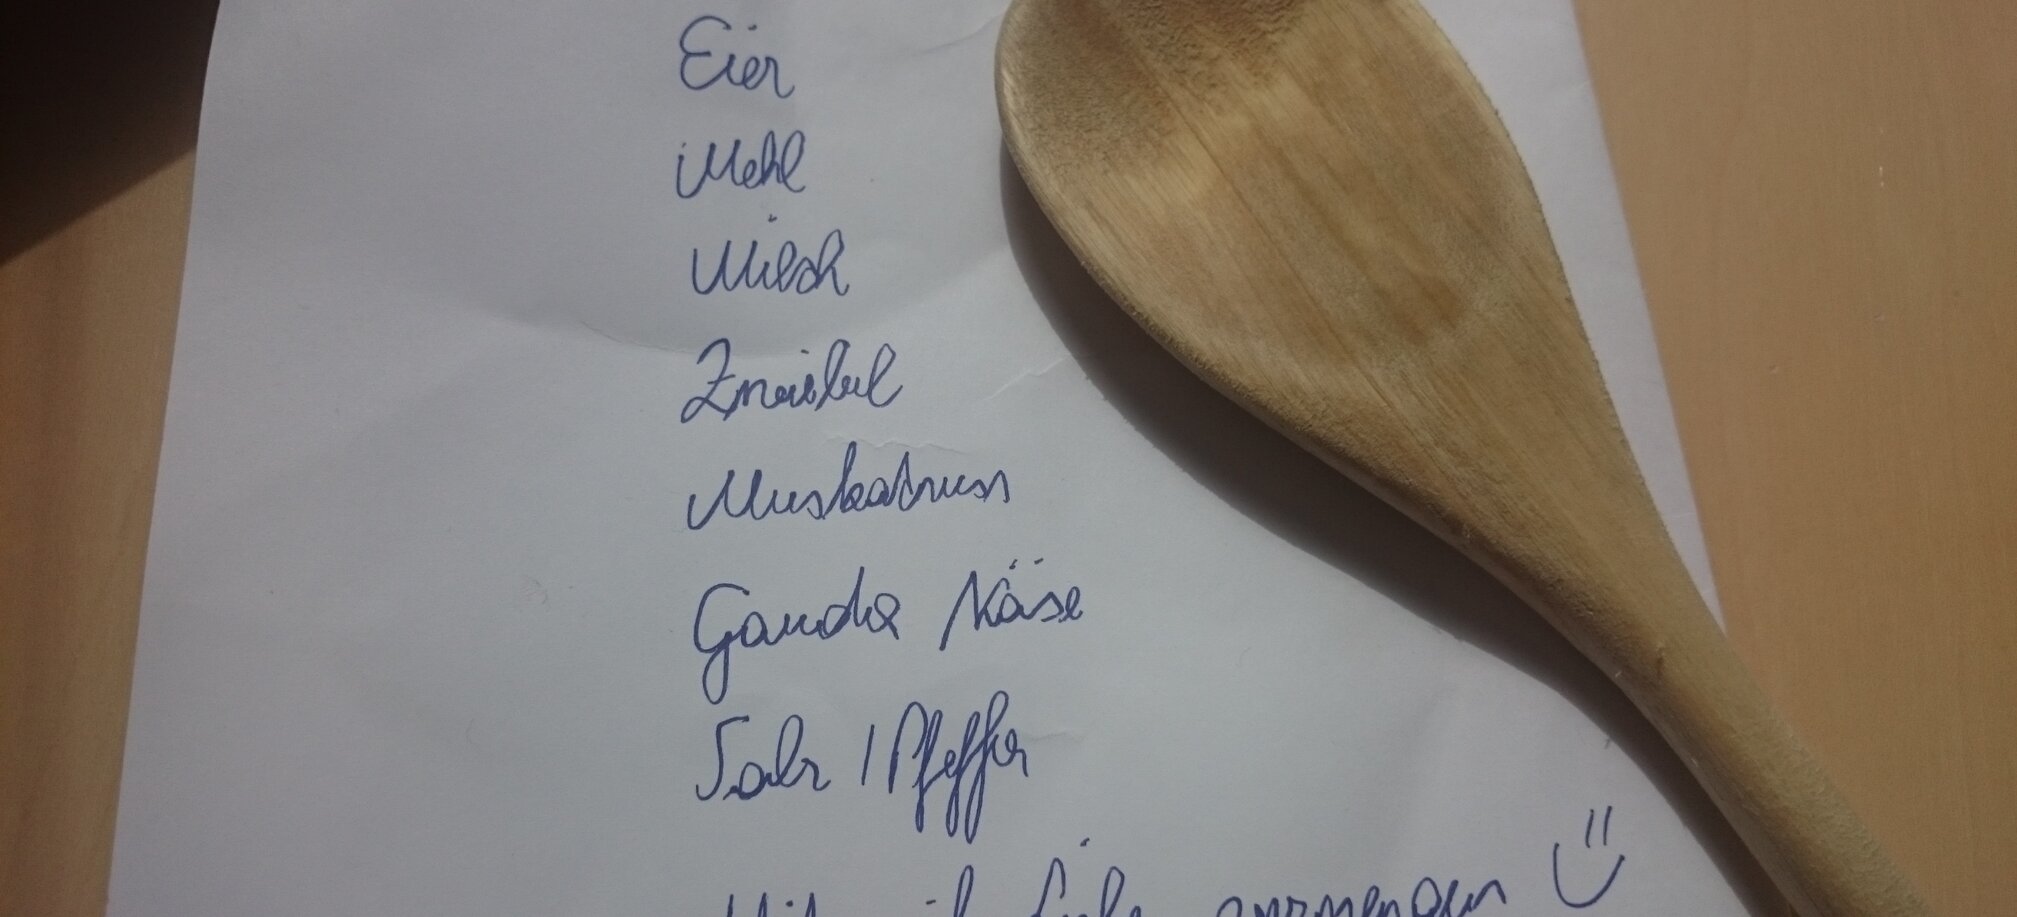 Eier
Mehl
Milch
Zwiebel
Muskatnuss
Gouda Käse
Salz / Pfeffer
Mit viel Liebe vermengen